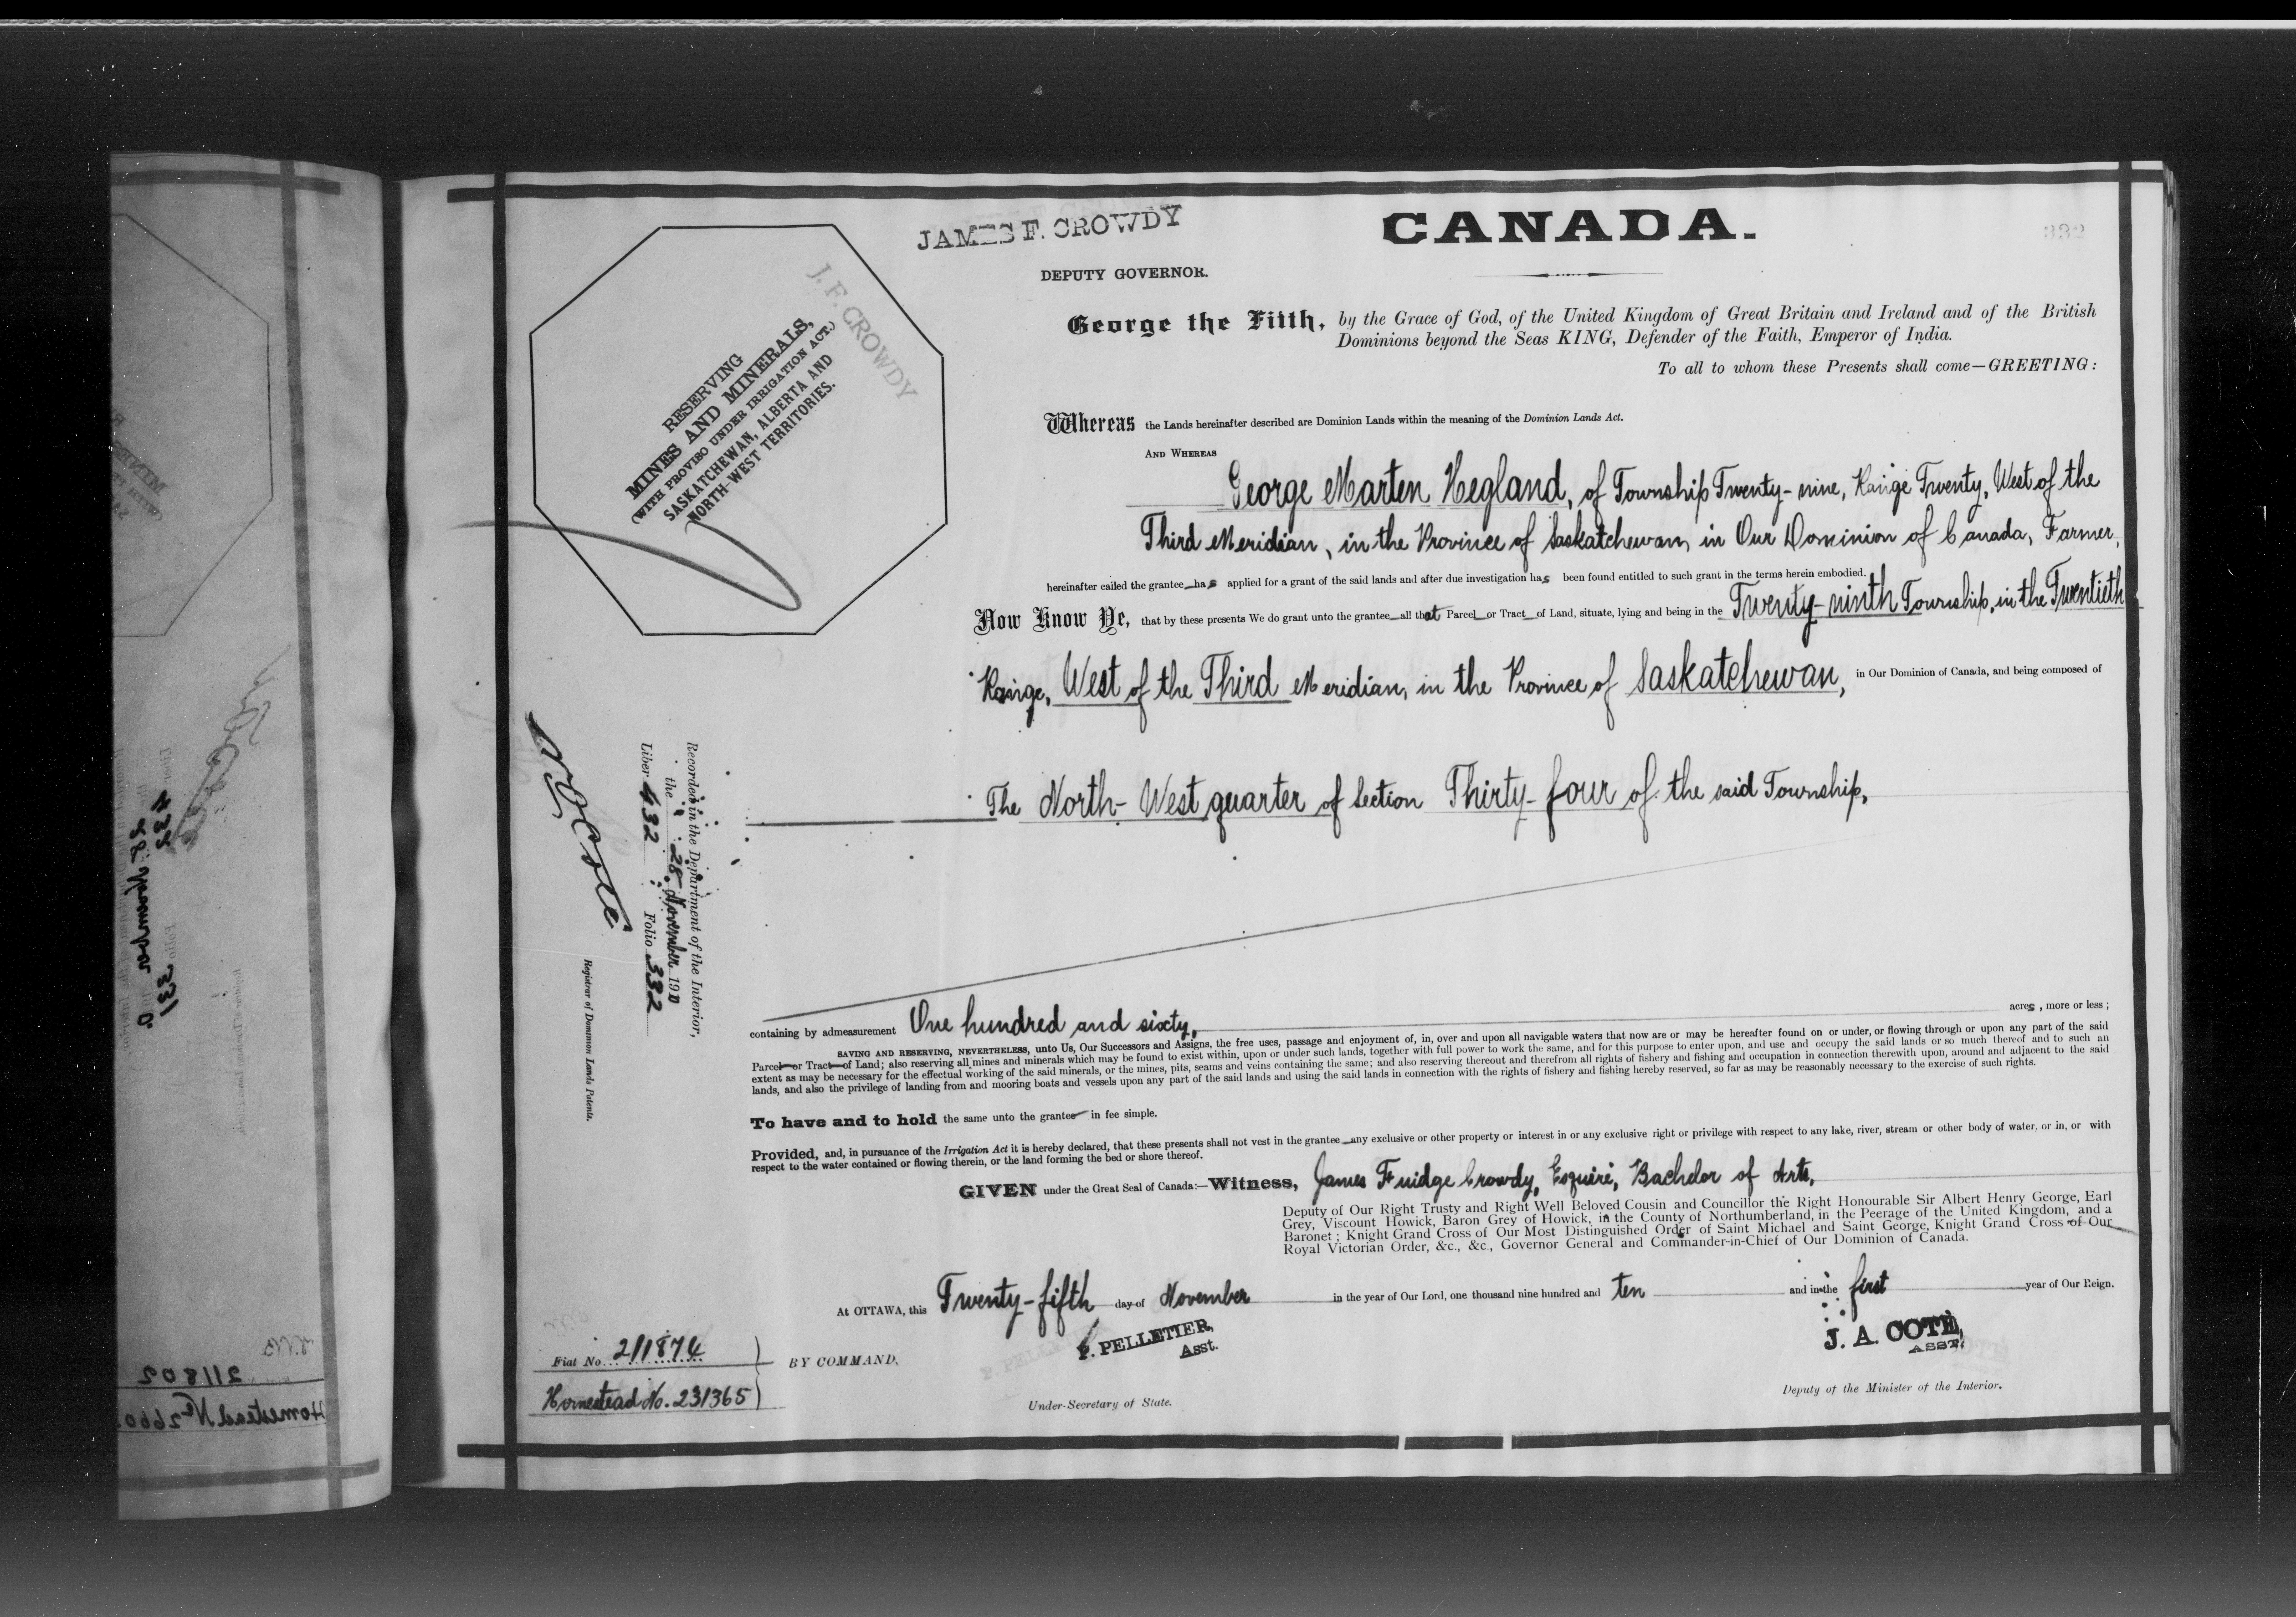 JAMES F. CROWDY
CANADA.
332
DEPUTY GOVERNOR.
J. F. CROWDY
RESERVING
MINES AND MINERALS,
(WITH PROVISO UNDER IRRIGATION ACT.)
SASKATCHEWAN, ALBERTA AND
NORTH-WEST TERRITORIES.
George the Fifth, by the Grace of God, of the United Kingdom of Great Britain and Ireland and of the British
Dominions beyond the Seas KING, Defender of the Faith, Emperor of India.
To all to whom these Presents shall come—GREETING:
Whereas the Lands hereinafter described are Dominion Lands within the meaning of the Dominion Lands Act.
AND WHEREAS
George Marten Hegland, of Township Twenty-nine, Range Twenty, West of the
Third Meridian, in the Province of Saskatchewan, in Our Dominion of Canada, Farmer,
hereinafter called the grantee has applied for a grant of the said lands and after due investigation has been found entitled to such grant in the terms herein embodied.
Now Know Ye, that by these presents We do grant unto the grantee all that Parcel or Tract of Land, situate, lying and being in the Twenty-ninth Township, in the Twentieth
Range, West of the Third Meridian, in the Province of Saskatchewan, in Our Dominion of Canada, and being composed of
The North-West quarter of Section Thirty-four of the said Township,
Recorded in the Department of the Interior,
the 28 November 1910
Liber 432 Folio 332
Registrar of Dominion Lands Patents.
containing by admeasurement One hundred and sixty, acres, more or less;
SAVING AND RESERVING, NEVERTHELESS, unto Us, Our Successors and Assigns, the free uses, passage and enjoyment of, in, over and upon all navigable waters that now are or may be hereafter found on or under, or flowing through or upon any part of the said
Parcel or Tract of Land; also reserving all mines and minerals which may be found to exist within, upon or under such lands, together with full power to work the same, and for this purpose to enter upon, and use and occupy the said lands or so much thereof and to such an
extent as may be necessary for the effectual working of the said minerals, or the mines, pits, seams and veins containing the same; and also reserving thereout and therefrom all rights of fishery and fishing and occupation in connection therewith upon, around and adjacent to the said
lands, and also the privilege of landing from and mooring boats and vessels upon any part of the said lands and using the said lands in connection with the rights of fishery and fishing hereby reserved, so far as may be reasonably necessary to the exercise of such rights.
To have and to hold the same unto the grantee in fee simple.
Provided, and, in pursuance of the Irrigation Act it is hereby declared, that these presents shall not vest in the grantee any exclusive or other property or interest in or any exclusive right or privilege with respect to any lake, river, stream or other body of water, or in, or with
respect to the water contained or flowing therein, or the land forming the bed or shore thereof.
GIVEN under the Great Seal of Canada:—Witness, James Fuidge Crowdy, Esquire, Bachelor of Arts,
Deputy of Our Right Trusty and Right Well Beloved Cousin and Councillor the Right Honourable Sir Albert Henry George, Earl
Grey, Viscount Howick, Baron Grey of Howick, in the County of Northumberland, in the Peerage of the United Kingdom, and a
Baronet; Knight Grand Cross of Our Most Distinguished Order of Saint Michael and Saint George, Knight Grand Cross of Our
Royal Victorian Order, &c., &c., Governor General and Commander-in-Chief of Our Dominion of Canada.
At OTTAWA, this Twenty-fifth day of November in the year of Our Lord, one thousand nine hundred and ten and in the first year of Our Reign.
P. PELLETIER,
Asst.
J. A. COTÉ,
ASST.
Fiat No. 211874
BY COMMAND,
Homestead No. 231365
Under-Secretary of State.
Deputy of the Minister of the Interior.